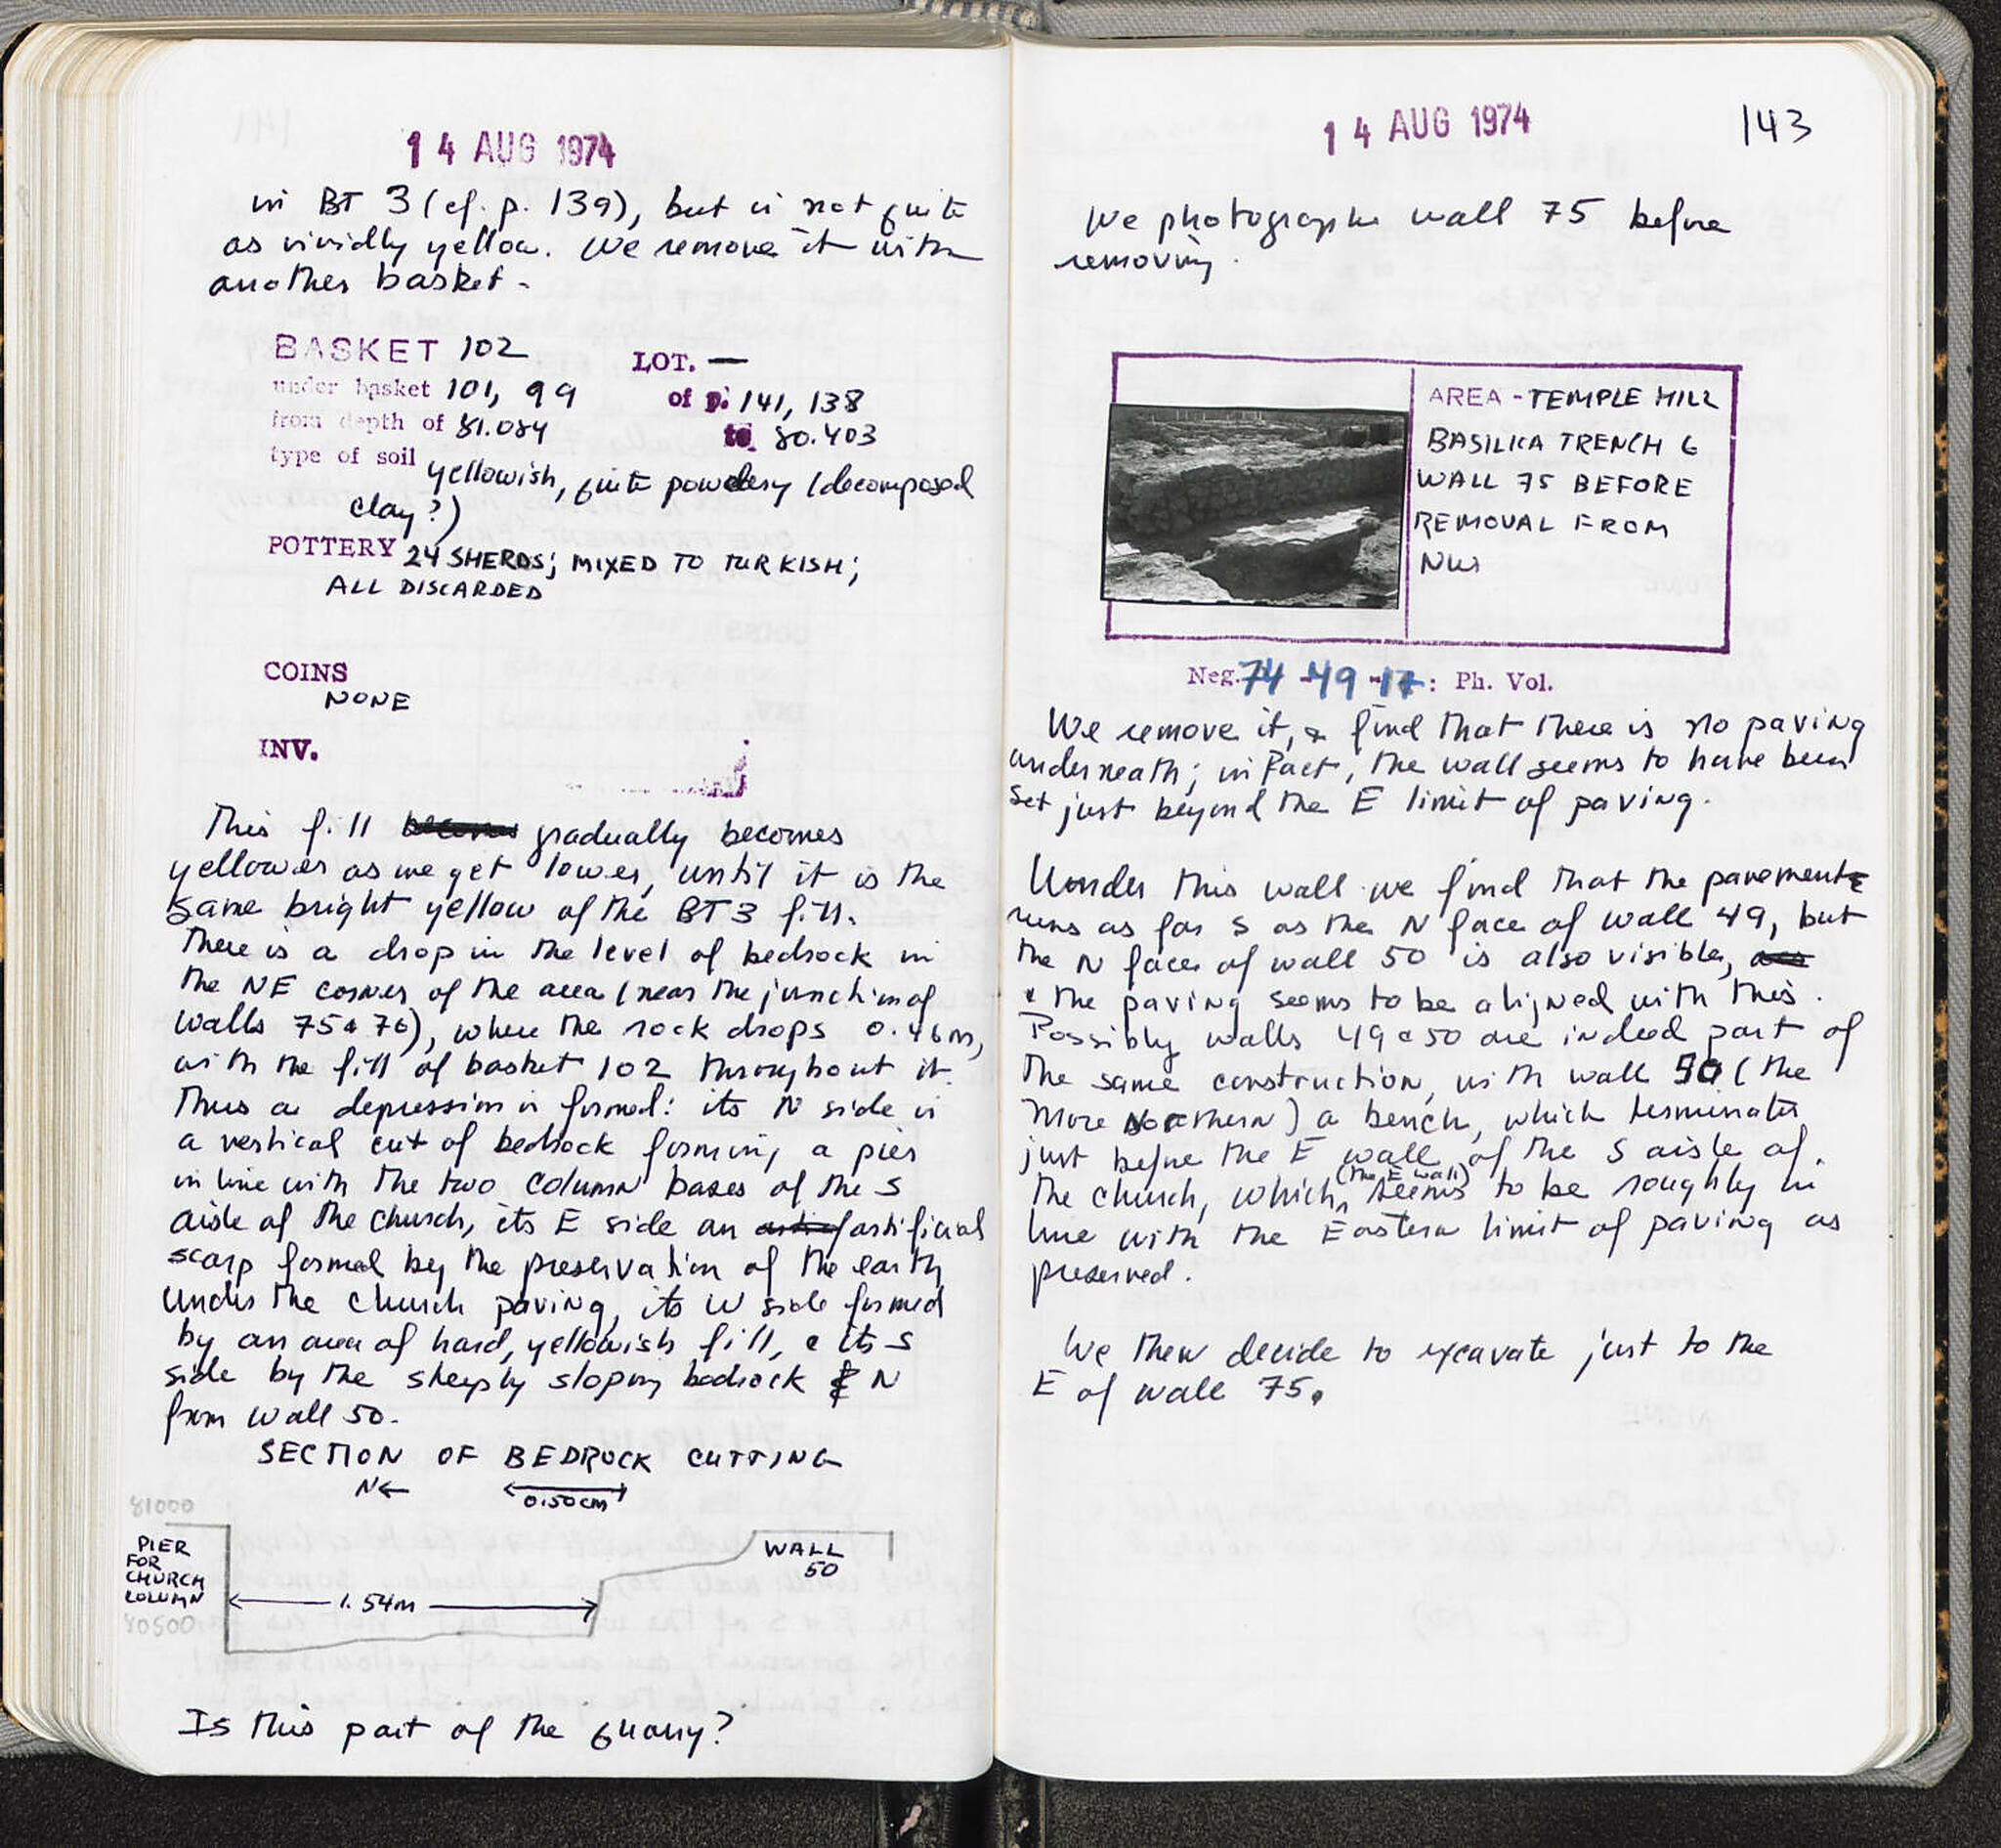 14 AUG 1974
in BT 3 (cf. p. 139), but is not quite
as vividly yellow. We remove it with
another basket.
BASKET 102 LOT. —
under basket 101, 99 of p. 141, 138
from depth of 81.084 to 80.403
type of soil yellowish, quite powdery (decomposed
clay?)
POTTERY 24 SHERDS; MIXED TO TURKISH;
ALL DISCARDED
COINS
NONE
INV.
This fill gradually becomes
yellower as we get lower, until it is the
same bright yellow of the BT 3 fill.
There is a drop in the level of bedrock in
the NE corner of the area (near the junction of
walls 75 & 76), where the rock drops 0.46m,
with the fill of basket 102 throughout it.
Thus a depression is formed: its N side is
a vertical cut of bedrock forming a pier
in line with the two column bases of the S
aisle of the church, its E side an artificial
scarp formed by the preservation of the earth
under the church paving, its W side formed
by an area of hard, yellowish fill, & its S
side by the steeply sloping bedrock N
from wall 50.
SECTION OF BEDROCK CUTTING
N←
0.50cm
81000
PIER
FOR
CHURCH
COLUMN
WALL
50
1.54m
80500
Is this part of the quarry?
14 AUG 1974
143
We photograph wall 75 before
removing.
AREA - TEMPLE HILL
BASILICA TRENCH 6
WALL 75 BEFORE
REMOVAL FROM
NW
Neg. 74-49-17: Ph. Vol.
We remove it, & find that there is no paving
underneath; in fact, the wall seems to have been
set just beyond the E limit of paving.
Under this wall we find that the pavement
runs as far S as the N face of wall 49, but
the N face of wall 50 is also visible,
& the paving seems to be aligned with this.
Possibly walls 49 & 50 are indeed part of
the same construction, with wall 50 (the
more northern) a bench, which terminates
just before the E wall of the S aisle of
the church, which (the E wall) seems to be roughly in
line with the Eastern limit of paving as
preserved.
We then decide to excavate just to the
E of wall 75.